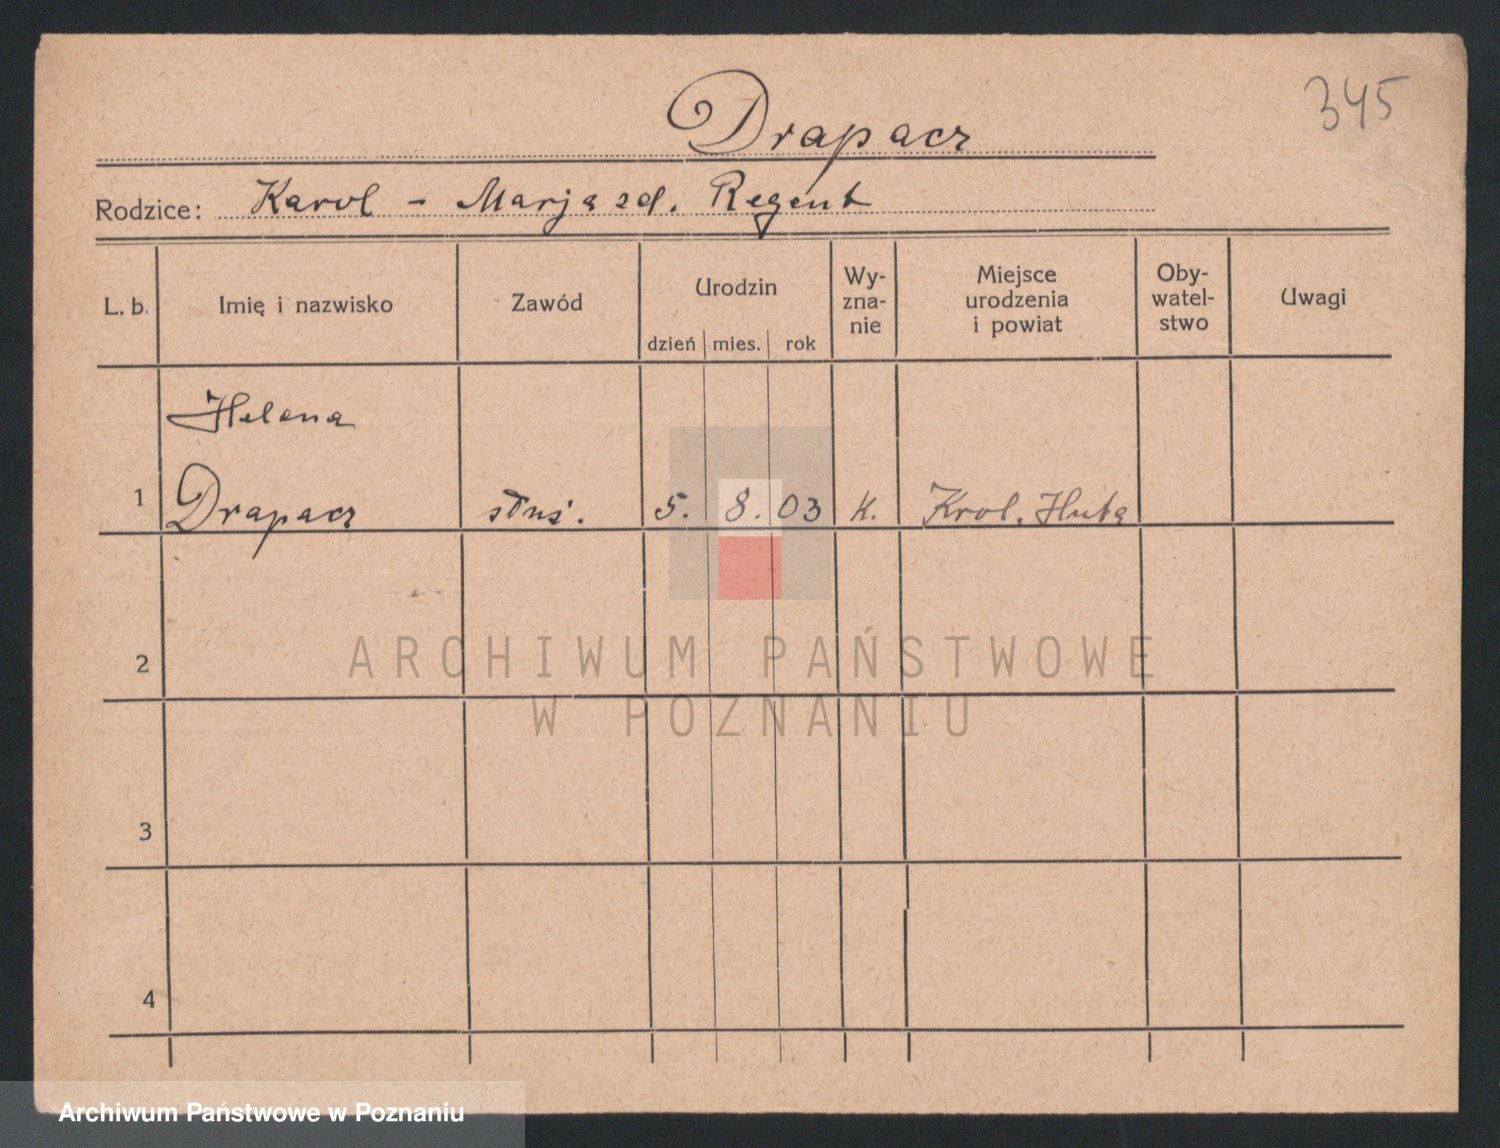 345
Drapacz
Rodzice: Karol - Marja zd. Regent
L. b. Imię i nazwisko Zawód Urodzin dzień mies. rok Wy-zna-nie Miejsce urodzenia i powiat Oby-watel-stwo Uwagi
Helena
1 Drapacz służ. 5. 8. 03 k. Król. Huta
2
ARCHIWUM PAŃSTWOWE
W POZNANIU
3
4
Archiwum Państwowe w Poznaniu